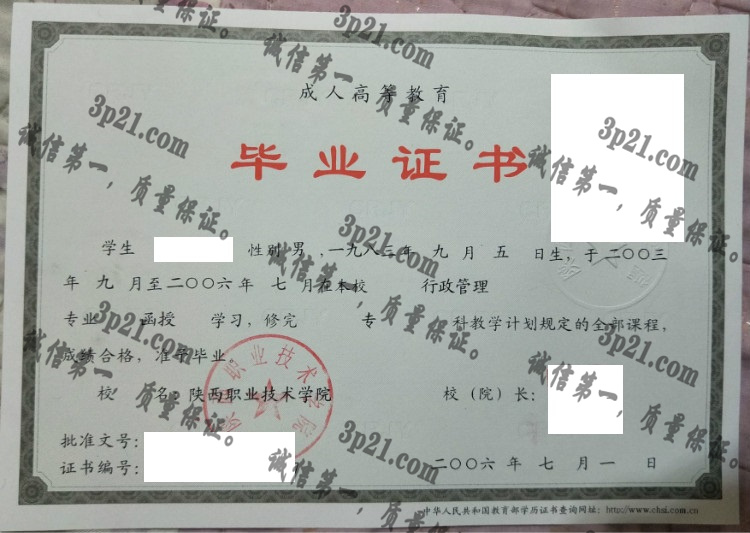 成人高等教育
毕业证书
学生 性别 男 , 一九八三年 九 月 五 日生, 于 二〇〇三
年 九 月至二〇〇六年 七 月在本校 行政管理
专业 函授 学习, 修完 专 科教学计划规定的全部课程,
成绩合格, 准予毕业。
校 名: 陕西职业技术学院 校（院）长:
批准文号:
证书编号: 二〇〇六 年 七 月 一 日
中华人民共和国教育部学历证书查询网址: http://www.chsi.com.cn
陕西职业技术学院
3p21.com
诚信第一，质量保证。
3p21.com
诚信第一，质量保证。
3p21.com
诚信第一，质量保证。
3p21.com
诚信第一，质量保证。
3p21.com
诚信第一，质量保证。
3p21.com
诚信第一，质量保证。
3p21.com
诚信第一，质量保证。
3p21.com
诚信第一，质量保证。